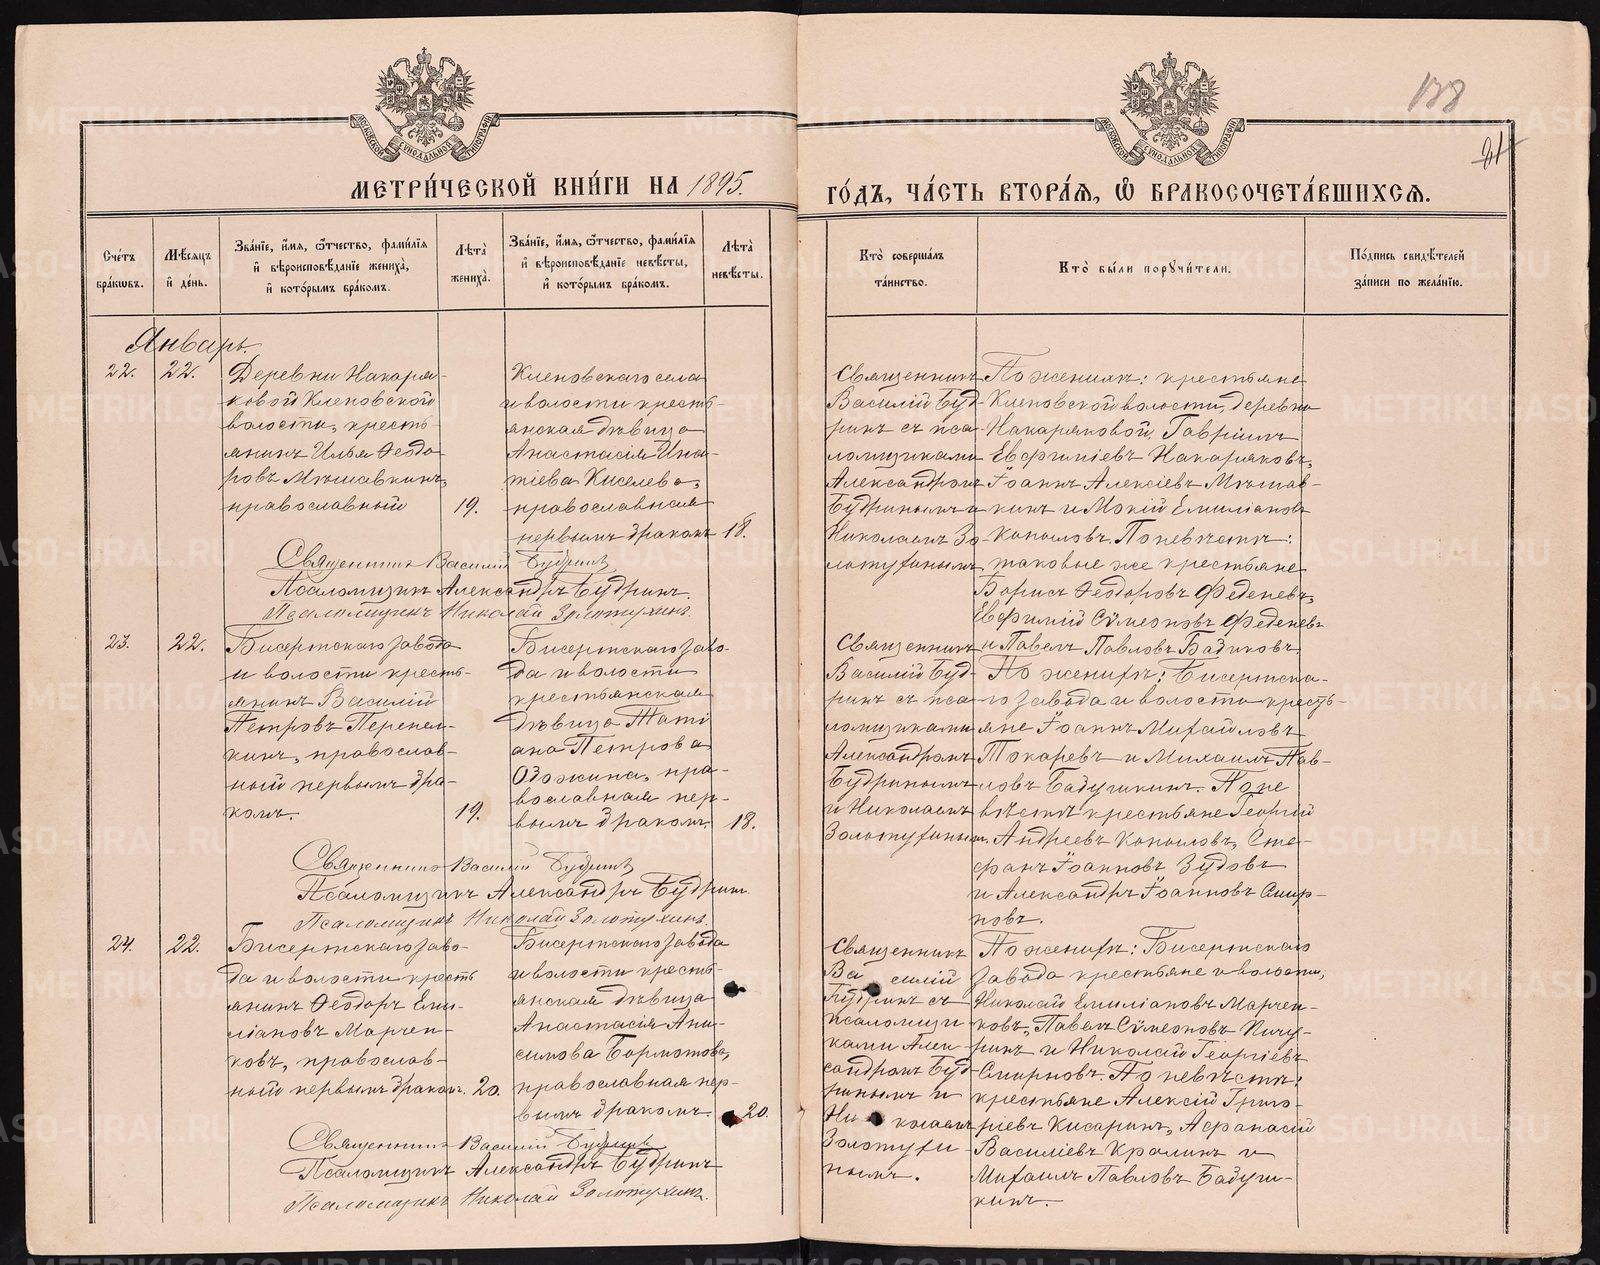 138
21
МОСКОВСКОЙ СѴНОДАЛЬНОЙ ТИПОГРАФІИ
МОСКОВСКОЙ СѴНОДАЛЬНОЙ ТИПОГРАФІИ
МЕТРИ́ЧЕСКОЙ КНИ́ГИ НА 1895.
ГО́ДЪ, ЧА́СТЬ ВТОРА́Я, Ѽ БРАКОСОЧЕТА́ВШИХСЯ.
Сче́тъ
бра́кѡвъ.
Мѣ́сяцъ
и҆ де́нь.
Зва́нїе, и҆́мя, ѻ҆́тчество, фами́лїя
и҆ вѣроисповѣ́данїе жениха̀,
и҆ кото́рымъ бра́комъ.
Лѣта̀
жениха̀.
Зва́нїе, и҆́мя, ѻ҆́тчество, фами́лїя
и҆ вѣроисповѣ́данїе невѣ́сты,
и҆ кото́рымъ бра́комъ.
Лѣта̀
невѣ́сты.
Кто̀ соверша́лъ
та́инство.
Кто̀ бы́ли порꙋчи́тели.
По́дпись свидѣ́телей
за́писи по жела́нїю.
Январь.
22.
22.
Деревни Накаря-
ковой Кленовской
волости, кресть-
янинъ Илья Ѳеодо-
ровъ Мѣшавкинъ,
православный
19.
Кленовскаго села
и волости кресть-
янская дѣвица
Анастасія Игна-
тіева Киселева,
православная
первымъ бракомъ
18.
Священникъ
Василій Буд-
ринъ съ пса-
ломщиками
Александромъ
Будринымъ и
Николаемъ Зо-
лотухинымъ
По женихѣ: крестьяне
Кленовской волости, деревни
Накаряковой, Гавріилъ
Евфиміевъ Накаряковъ,
Іоаннъ Алексіевъ Мѣшав-
кинъ и Мокій Емиліановъ
Копыловъ. По невѣстѣ:
таковые же крестьяне
Борисъ Ѳеодоровъ Феденевъ,
Евфимій Сѵмеоновъ Феденевъ
и Павелъ Павловъ Бадиковъ.
Священникъ Василій Будринъ
Псаломщикъ Александръ Будринъ.
Псаломщикъ Николай Золотухинъ.
23.
22.
Бисертскаго завода
и волости кресть-
янинъ Василій
Петровъ Перепел-
кинъ, православ-
ный первымъ бра-
комъ.
19.
Бисертскаго заво-
да и волости
крестьянская
дѣвица Тати
ана Петрова
Одожина, пра-
вославная пер-
вымъ бракомъ.
18.
Священникъ
Василій Буд-
ринъ съ пса-
ломщиками
Александромъ
Будринымъ
и Николаемъ
Золотухинымъ.
По женихѣ: Бисертска-
го завода и волости кресть-
яне Іоаннъ Михайловъ
Токаревъ и Михаилъ Пав-
ловъ Бадушкинъ. По не
вѣстѣ крестьяне Георгій
Андреевъ Копыловъ, Сте-
фанъ Іоанновъ Зудовъ
и Александръ Іоанновъ Смир-
новъ.
Священникъ Василій Будринъ
Псаломщикъ Александръ Будринъ.
Псаломщикъ Николай Золотухинъ
24.
22.
Бисертскаго заво-
да и волости кресть
янинъ Ѳеодоръ Еми-
ліановъ Марчен-
ковъ, православ-
ный первымъ бракомъ.
20.
Бисертскаго завода
и волости кресть-
янская дѣвица
Анастасія Ани-
симова Бормотова,
православная пер-
вымъ бракомъ.
20.
Священникъ
Василій
Будринъ съ
псаломщи
ками Алек-
сандромъ Буд-
ринымъ и
Николаемъ
Золотухи
нымъ.
По женихѣ: Бисертскаго
завода крестьяне и волости,
Николай Емиліановъ Марчен-
ковъ, Павелъ Сѵмеоновъ Пичу-
ринъ и Николай Георгіевъ
Смирновъ. По невѣстѣ:
крестьяне Алексій Григо-
ріевъ Кисаринъ, Аѳанасій
Василіевъ Кралинъ и
Михаилъ Павловъ Бадуш-
кинъ.
Священникъ Василій Будринъ
Псаломщикъ Александръ Будринъ
Псаломщикъ Николай Золотухинъ.
METRIKI.GASO-URAL.RU